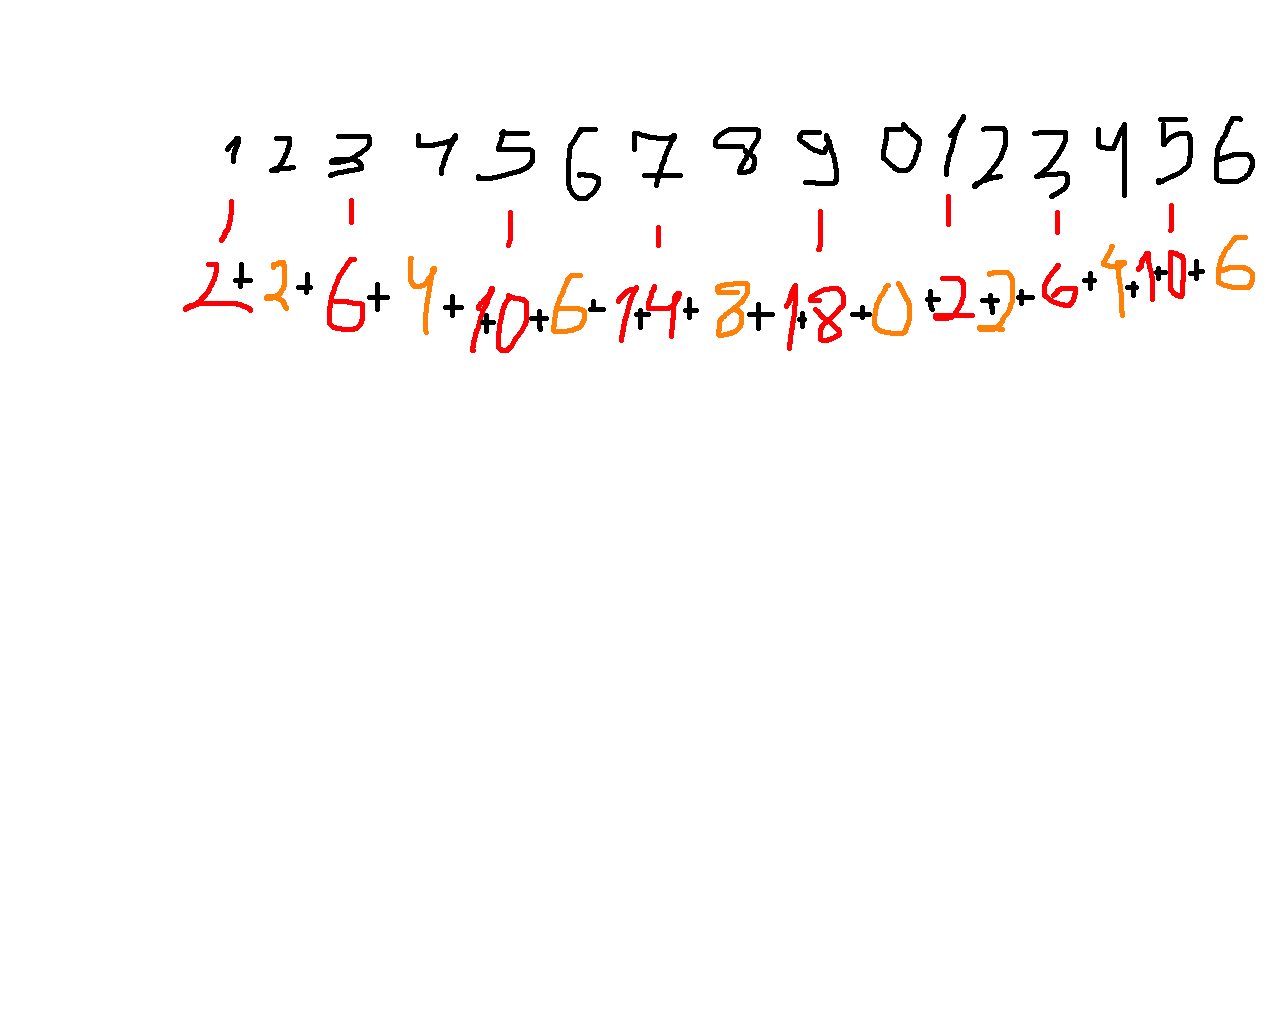 1 2 3 4 5 6 7 8 9 0 1 2 3 4 5 6
2 + 2 + 6 + 4 + 1 + 0 + 6 + 1 + 4 + 8 + 1 + 8 + 0 + 2 + 2 + 6 + 4 + 1 + 0 + 6